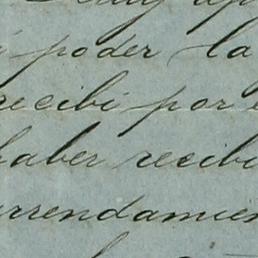 poder la
recibi por
haber recibi
arrendamien